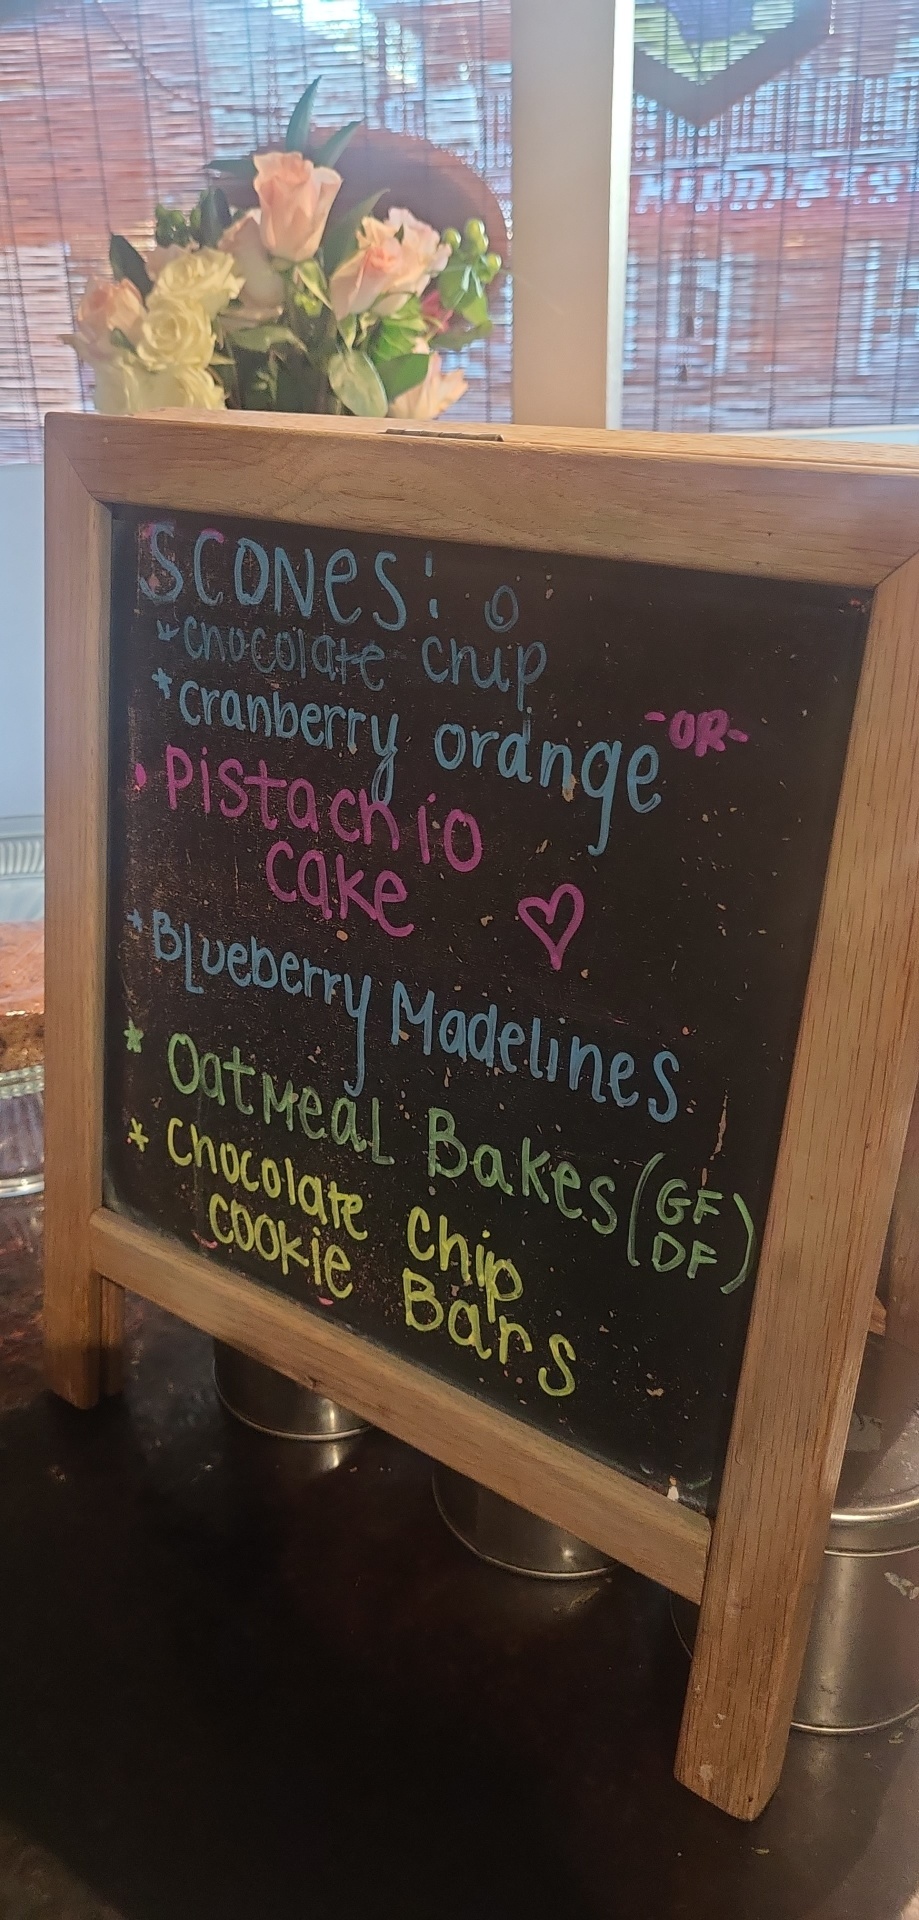 SCONES:
*chocolate chip
*cranberry orange -OR-
• Pistachio
cake ♡
*Blueberry Madelines
* Oatmeal Bakes (GF
DF)
* Chocolate Chip
Cookie Bars